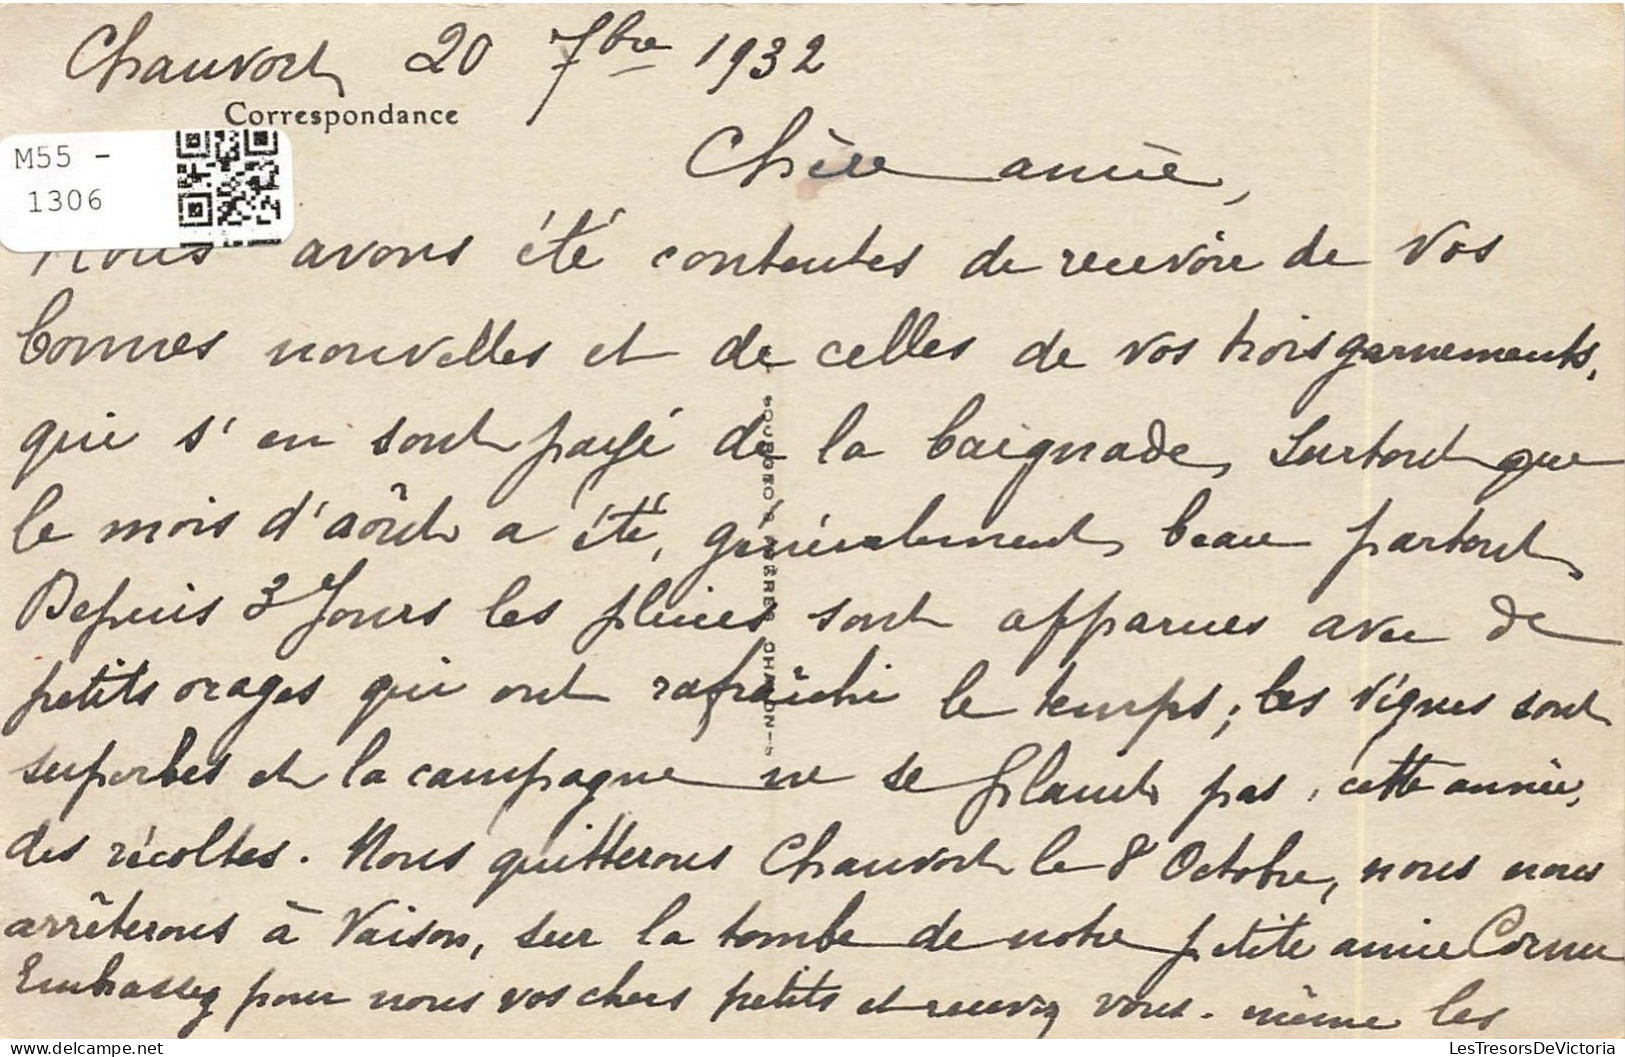 Chauvort 20 7bre 1932
Correspondance
M55 -
1306
Chère amie,
Nous avons été contentes de recevoir de vos
bonnes nouvelles et de celles de vos trois garnements,
qui s'en sont payé de la baignade, surtout que
le mois d'aôut a été, généralement, beau partout,
Depuis 3 Jours les pluies sont apparues avec de
petits orages qui ont rafraîchi le temps; les vignes sont
superbes et la campagne ne se plaint pas, cette année,
des récoltes. Nous quitterons Chauvort le 8 Octobre, nous nous
arrêterons à Vaison, sur la tombe de notre petite amie Cornu
Embrassez pour nous vos chers petits et recevez vous-même les
LesTresorsDeVictoria